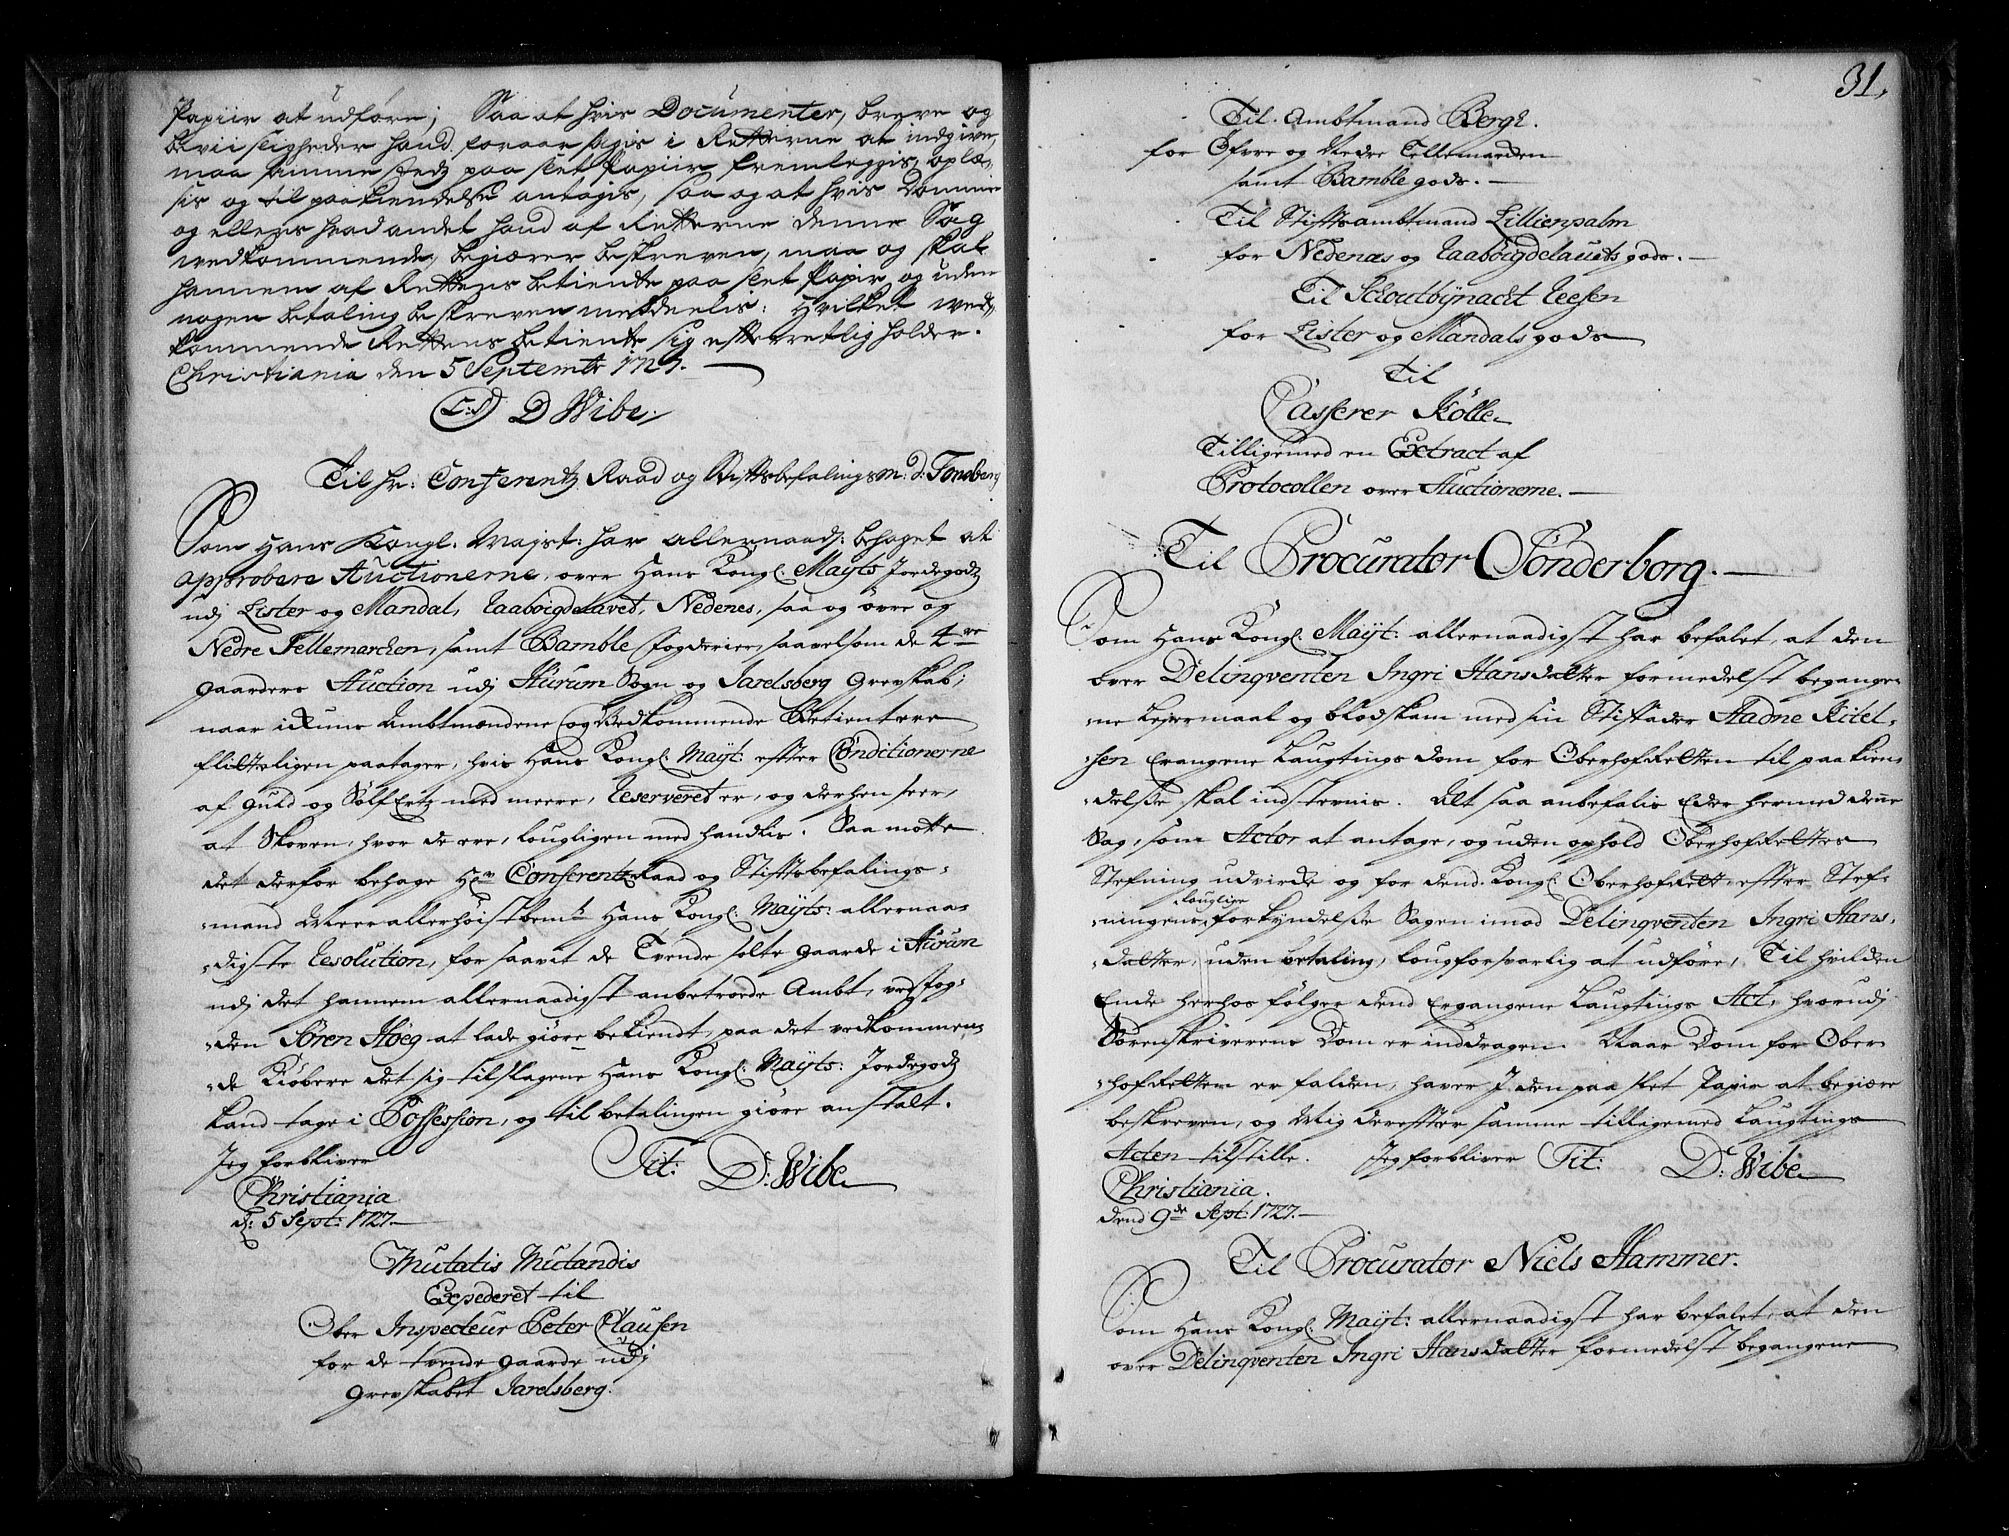 Papiir at udføre; Saa at hvis Documenter, breve og
bevisligheder hand foraarsagis i Retterne at indgive,
maa samme stedz paa slet Papiir fremleggis, oplæ-
sis og til paakiendelse antagis, saa og at hvis Domme
og ellers hvad andet hand af Retterne denne Sag
vedkommende, begiærer beskreven, maa og skal
hannem af Rettens betiente paa slet Papir og uden
nogen betaling beskreven meddeelis: Hvilket ved-
kommende Rettens betiente sig efterretlig holder.
Christiania den 5 Septembr 1727.
(L:S) D Wibe.
Til Hr: Conferentz Raad og Stiftsbefalingsm: d: Tonsberg
Som Hans Kongl. Majst: har allernaad: behaget at
approbere Auctionerne, over Hans Kongl: Mayts Jordegodz
udj Lister og Mandal, Raabøigdelavet, Nedenes, saa og øvre og
Nedre Tellemarchen, samt Bamble fogderier, saavelsom de 4re
gaarders Auction udj Hurum Sogn og Jarlsberg Grevskab;
naar ickuns Ambtmændene og Vedkommende Betientere
flitteligen paatager, hvis Hans Kongl: Mayt: effter Conditionerne
af Guld og Sølf Ertz med meere, Reserveret er, og derhen seer,
at Skoven, hvor de ere, lougligen med handlis. Saa motte
det derfor behage Hr Conferentz Raad og Stiftsbefalings-
mand Meerallerhøistbemte Hans Kongl: Mayts: allernaa-
digste Resolution, for saavit de Tvende solte gaarde i Hurum
udj det hannem allernaadigst anbetroede Ambt, ved fog-
den Søren Høeg at lade giøre bekiendt, paa det vedkommen-
de Kiøbere det sig tilslagene Hans Kongl: Mayts: Jordegodz
kand tage i Possession, og til betalingen giøre anstalt.
Jeg forbliver Tit: D: Wibe
Christiania
d: 5 Sept: 1727.
Mutatis Mutandis
Expederet til
Ober Inspecteur Peter Clausen
for de tvende gaarde udj
Grevskabet Jarelsberg.
31.
Til Ambtmand Bergh.
for Øfvre og Nedre Tellemarcken
samt Bamble gods.
Til Stiftsambtmand Lillienpalm
for Nedenæs og Raabøigdelauets gods.
Til Schoutbynacht Reesen
for Lister og Mandals gods
Til
Casserer Kölle
Tilligemed en Extract af
Protocollen over Auctionerne.
Til Procurator Sönderborg.
Som Hans Kongl: Mayt: allernaadigst har befalet, at den
over Delinqventen Ingri Hansdatter formedelst begange-
ne Leiermaal og blodskam med sin Stiffader Aadne Kitel-
sen Ergangene Laugtings dom for Oberhofretten til paakien-
delse skal indstevnis. Alt saa anbefalis Eder hermed denne
Sag, som Actor at antage, og uden ophold Oberhofrettes
Stefning udvirde og for dend Kongl: Oberhofrett, effter Stef-
ningens louglige forkyndelse Sagen imod Delinqventen Ingri Hans-
datter, uden betaling, lougforsvarlig at udføre, Til hvilcken
Ende herhos følger dend Ergangene Laugtings Act, hvorudj
Sorenskriverens Dom er inddragen. Naar Dom for Ober-
hofretten er falden, haver I den paa slet Papir at begiære
beskreven, og Mig dereffter samme tilligemed Laugtings
Acten tilstille. Jeg forbliver Tit: D: Wibe
Christiania.
dend 9de Sept: 1727.
Til Procurator Niels Hammer.
Som Hans Kongl: Mayt: allernaadigst har befalet, at den
over Delinqventen Ingri Hansdatter formedelst begangene